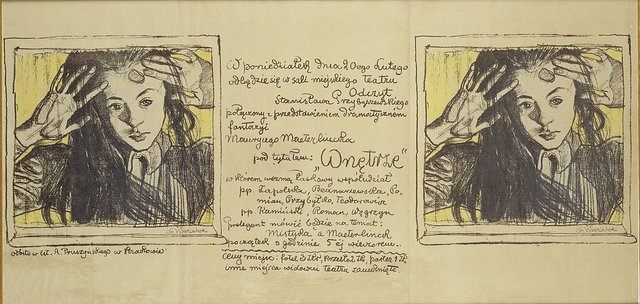 W poniedziałek dnia 20ego lutego
odbędzie się w sali miejskiego teatru
Odczyt
Stanisława Przybyszewskiego
połączony z przedstawieniem dramatycznem
fantazyi
Maurycego Maeterlincka
pod tytułem: „Wnętrze"
w którem wezmą łaskawy współudział
pp. Zapolska, Bednarzewska, Po-
mian, Przybyłko,
pp. Kamiński, Roman, Węgrzyn
Prelegent mówić będzie na temat:
Mistyka a Maeterlinck
początek o godzinie 5ej wieczorem.
Ceny miejsc: fotel 3 złr, krzesło 2 złr, parter 1 złr
inne miejsca widowni teatru zamknięte.
odbito w lit. A. Pruszyńskiego w Krakowie